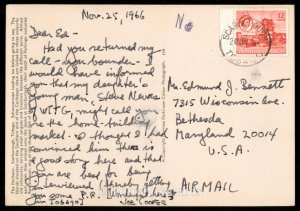 Nov. 25, 1966
No
Dear Ed -
Had you returned my
call - you bounder - I
would have informed
you that my daughter's
man, Steve Nevas,
WTTG, might call you
on the home-building
market. I thought I had
convinced him there is
a good story here and that
you are best for being
interviewed (hereby getting
you some P.R.
[Tobago]
Joe Cooper
SCARBOROUGH
TOBAGO
Mr. Edmund J. Bennett
7315 Wisconsin Ave.
Bethesda
Maryland 20014
U.S.A.
AIR MAIL